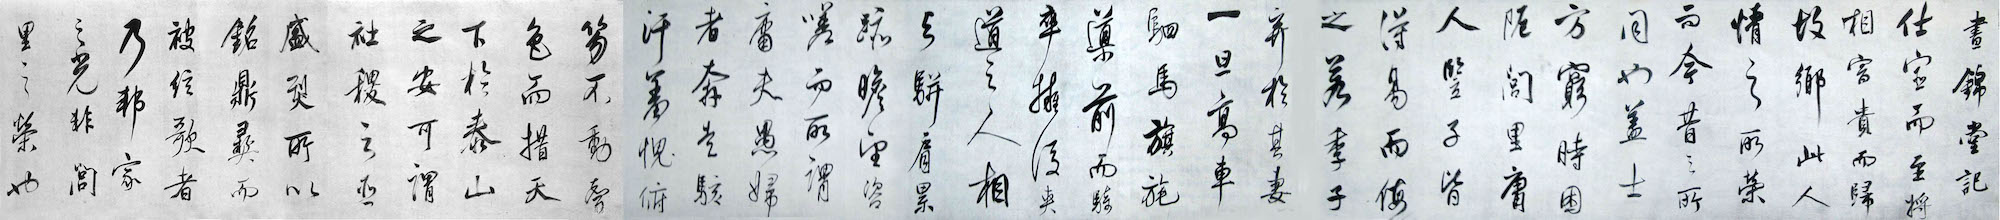 晝錦堂記
仕宦而至將
相富貴而歸
故鄉此人
情之所榮
而今昔之所
同也蓋士
方窮時困
阨閭里庸
人豎子皆
得易而侮
之若季子
棄於其妻
一旦高車
駟馬旗旄
導前而騎
卒擁後夾
道之人相
與駢肩累
跡瞻望咨
嗟而所謂
庸夫愚婦
者奔走駭
汗羞愧俯
笏不動聲
色而措天
下於泰山
之安可謂
社稷之臣
盛烈所以
銘鼎彝而
被絃歌者
乃邦家
之光非閭
里之榮也